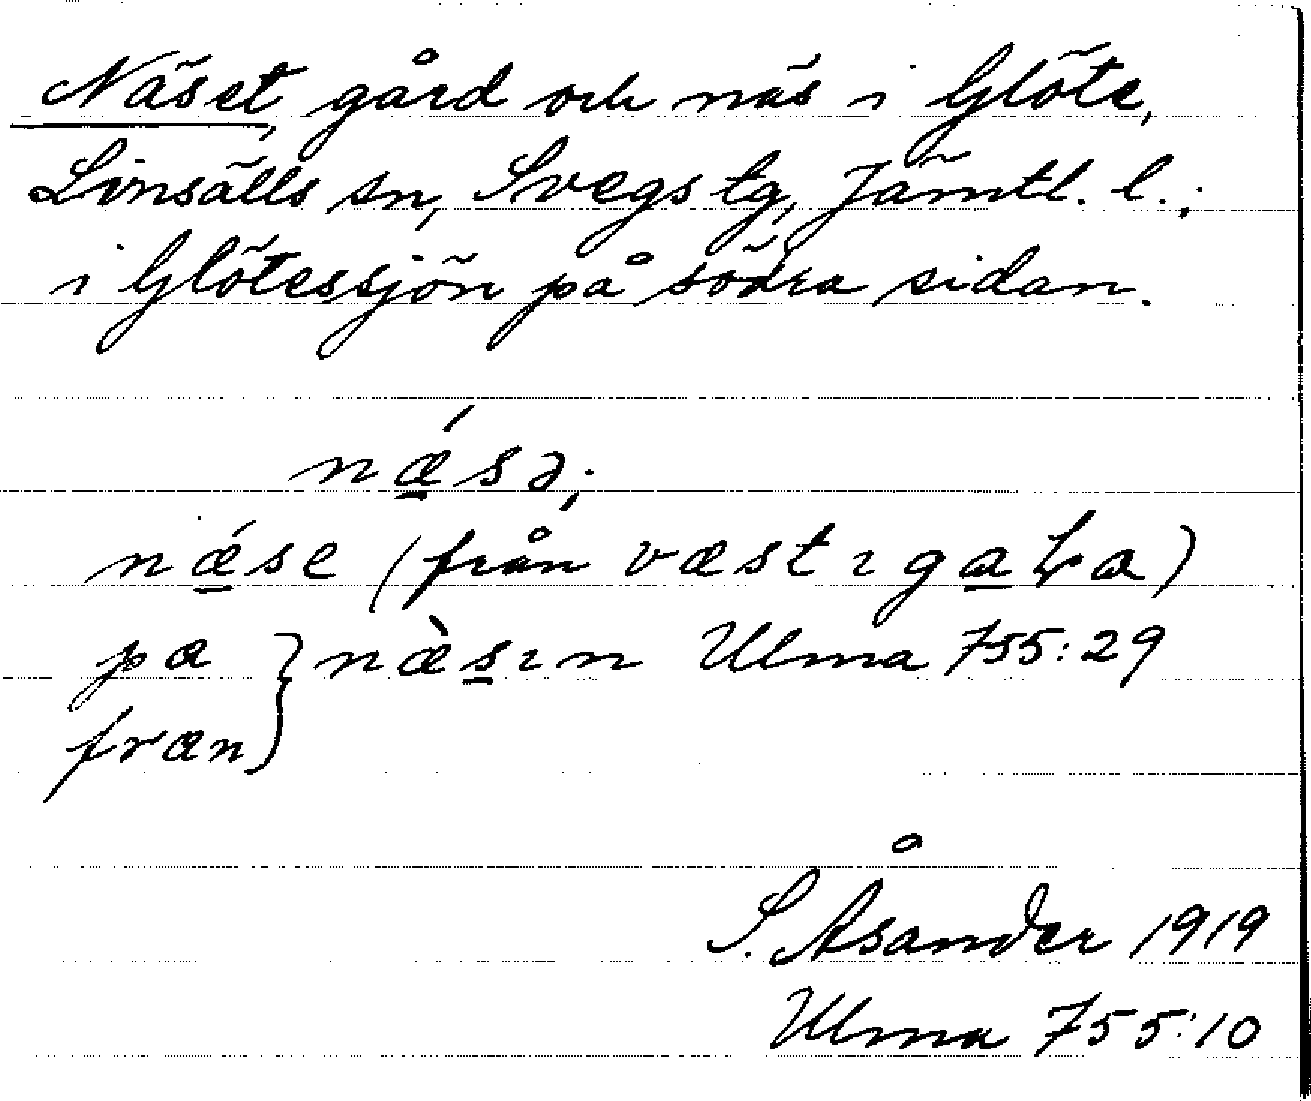 Näset, gård och näs i Glöte,
Linsälls sn, Svegs tg, Jämtl. l.;
i Glötessjön på södra sidan.
nǽsə;
nǽse (från væstıgaꞎa)
pa } næ̀sın Ulma 755:29
fræn
S. Åsander 1919
Ulma 755:10